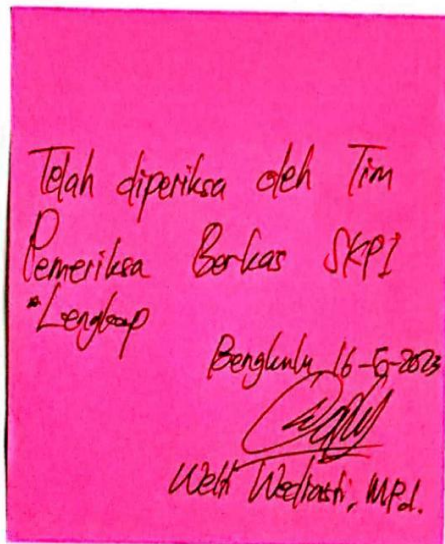 Telah diperiksa oleh Tim
Pemeriksa Berkas SKPI
*Lengkap
Bengkulu, 16-5-2023
Welti Wediasti, M.Pd.